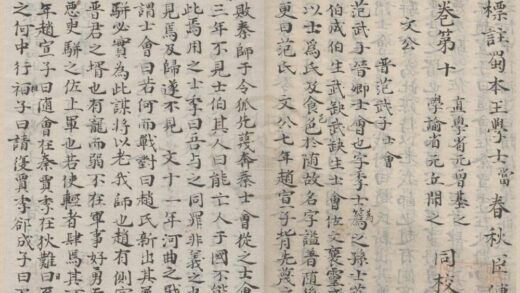 標註蜀本王學士當春秋臣傳
卷第十 直學省元曾基之
學諭省元丘聞之 同校
文公
晉范武子士會
范武子晉卿士會也字季士蒍之孫士
伯成伯生武缺武缺生士會佐文襄靈
以士為氏及食色於隨故名字謚著隨
更曰范氏 文公七年趙宣子背先蔑
敗秦師于令狐先蔑奔秦士會從之士會
三年不見士伯其人曰能亡人于國不能
此焉用之士季曰吾与之同罪非義之也
見焉及歸遂不見 文十一年河曲之戰
謂士會曰若何而戰對曰趙氏新出其
駢必實為此謀将以老我師也趙有側室
晉君之壻也有寵而弱不在軍事好勇而
惡史駢之佐上軍也若使輕者肆焉其
年趙宣子曰隨會在秦賈季在狄難日至
之何中行桓子曰請復賈季郤成子曰